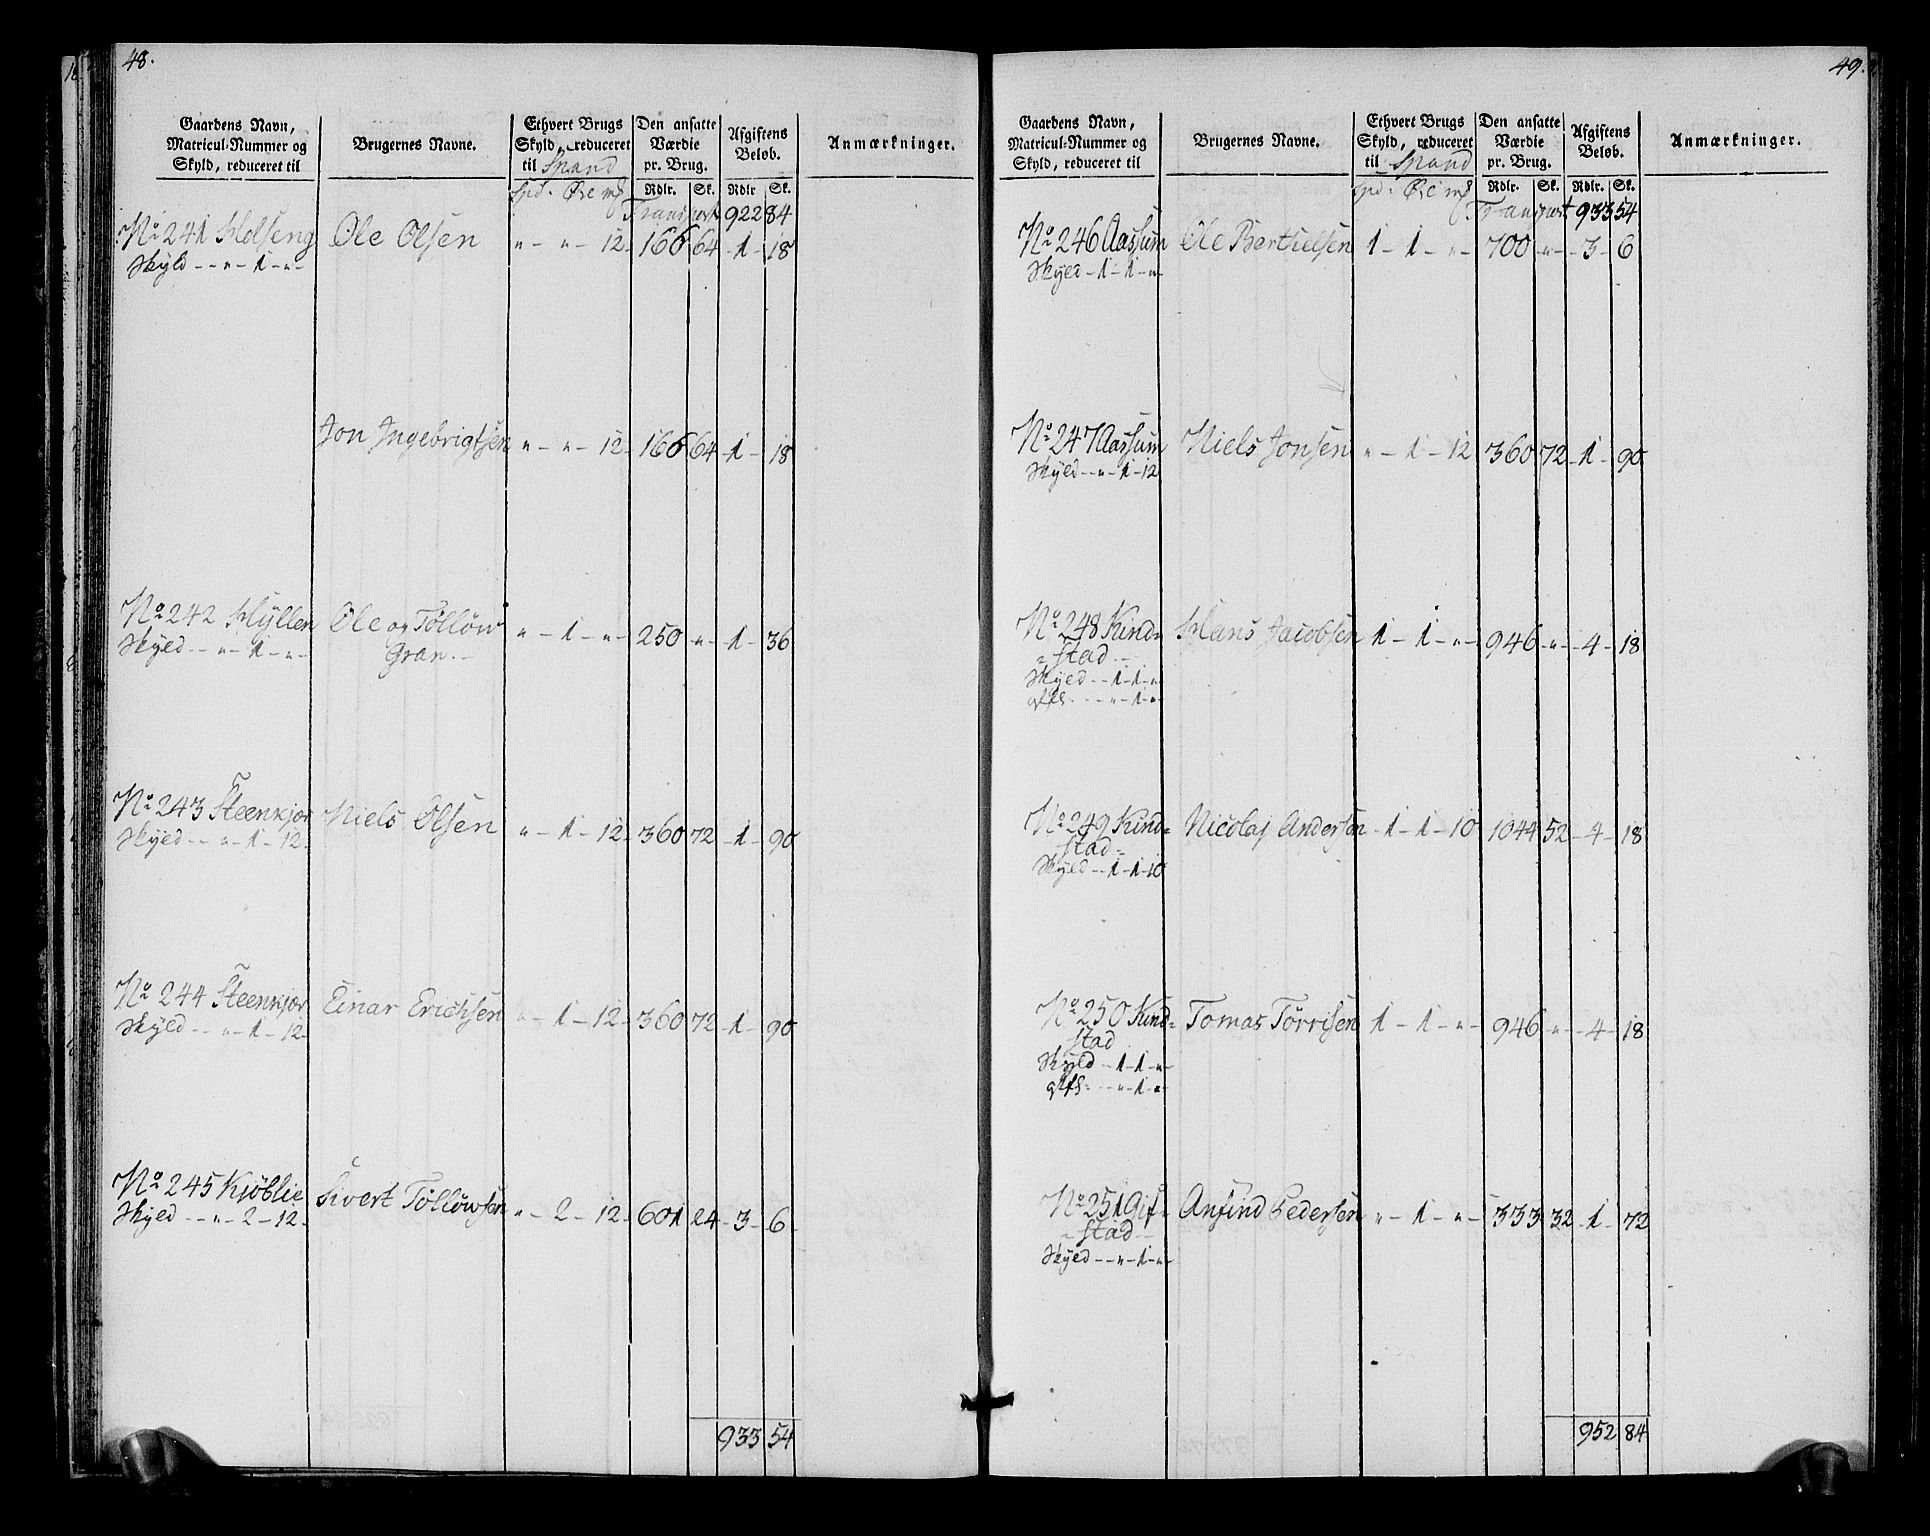 48.
Gaardens Navn, Matricul-Nummer og Skyld, reduceret til | Brugernes Navne. | Ethvert Brugs Skyld, reduceret til Spand | Den ansatte Værdie pr. Brug. | Afgiftens Beløb. | Anmærkninger.
Spd. Øre mß | Rdlr. | Sk. | Rdlr. | Sk.
Transport 922 84
No 241 Holseng Ole Olsen " - " - 12 - 166 64 - 1 - 18
Skyld - - " - 1 - " -
Jon Ingebrigtsen " - " - 12 - 166 64 - 1 - 18
No 242 Hyllen Ole og Tølløw " - 1 - " - 250 - " - 1 - 36
Skyed - - " - 1 - " - Gran. -
No 243 Steenkjør Niels Olsen " - 1 - 12 - 360 72 - 1 - 90
Skyed - - " - 1 - 12 -
No 244 Steenkjør Einar Erichsen " - 1 - 12 - 360 72 - 1 - 90
Skyld - - " - 1 - 12 -
No 245 Kjøblie Sivert Tølløwsen " - 2 - 12 - 601 24 - 3 - 6 -
Skyed - - " - 2 - 12 -
933 54
49.
Gaardens Navn, Matricul-Nummer og Skyld, reduceret til | Brugernes Navne. | Ethvert Brugs Skyld, reduceret til Spand | Den ansatte Værdie pr. Brug. | Afgiftens Beløb. | Anmærkninger.
Spd. Øre mß | Rdlr. | Sk. | Rdlr. | Sk.
Transport 933 54
No 246 Aassum Ole Bertielsen 1 - 1 - " - 700 - " - 3 - 6
Skyed - 1 - 1 - " -
No 247 Aassum Niels Jonsen " - 1 - 12 360 72 - 1 - 90
Skyld - - " - 1 - 12
No 248 Kind= Hans Jacobsen 1 - 1 - " - 946 - " - 4 - 18
= stad -
Skyed - - 1 - 1 - " -
- " - 1 - " -
No 249 Kind= Nicolaj Andersen - 1 - 1 - 10 1044 52 - 4 - 18
stad =
Skyld - - 1 - 1 - 10
No 250 Kind= Tomas Tørrisen 1 - 1 - " - 946 - " - 4 - 18
stad
Skyld - - 1 - 1 - " -
- " - 1 - " -
No 251 Gif= Anfind Pedersen " - 1 - " - 333 32 - 1 - 72
= stad -
Skyed - - " - 1 - " -
952 84